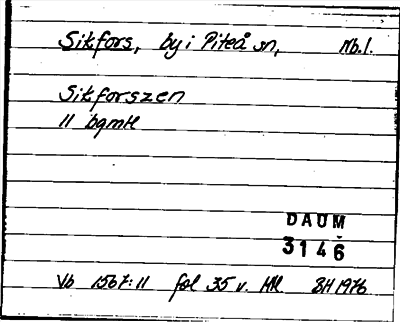 Sikfors, by i Piteå sn, Nb.l.
Sikforszen
11 bgmtl
DAUM
3146
Vb 1567:11 fol 35 v. Hkl BH 1976